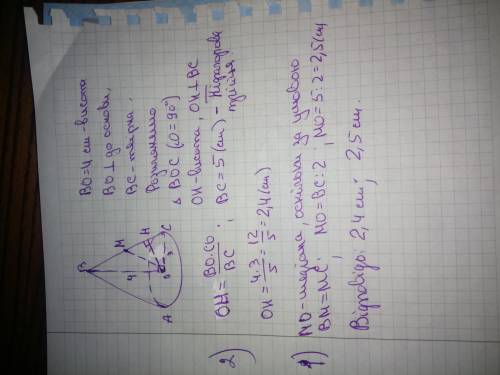 B
M
H
4
A
O
3
C
BO=4 см-висота
BO⊥до основи,
BC-твірна.
Розглянемо
△BOC (∠O=90°)
OH-висота, OH⊥BC
2) OH=BO·CO/BC; BC=5(см)-Піфагорова трійця
OH=4·3/5=12/5=2,4(см)
1) MO-медіана, оскільки за умовою
BM=MC; MO=BC:2; MO=5:2=2,5(см)
Відповідь: 2,4 см; 2,5 см.